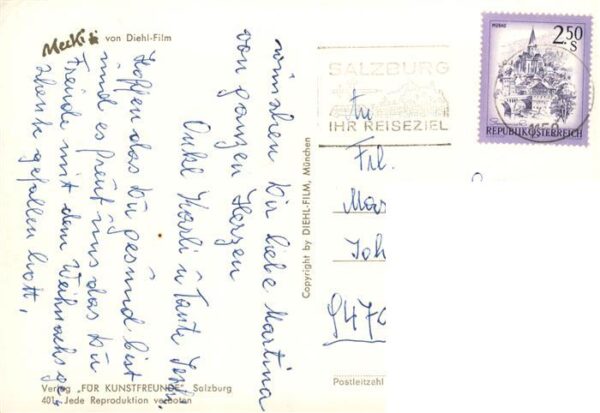 Mecki von Diehl-Film
wünschen Dir liebe Martina
von ganzen Herzen
Onkel Karli u Tante
Hoffen das Du gesund bist
und es freut uns das Du
Freude mit dem Weihnachsge-
schenk gefallen hatt,
Verlag „FÜR KUNSTFREUNDE" Salzburg
401 Jede Reproduktion verboten
Copyright by DIEHL-FILM, München
SALZBURG
IHR REISEZIEL
MURAU
2.50
S
REPUBLIK ÖSTERREICH
An
Frl.
Mar
Joh
9470
Postleitzahl